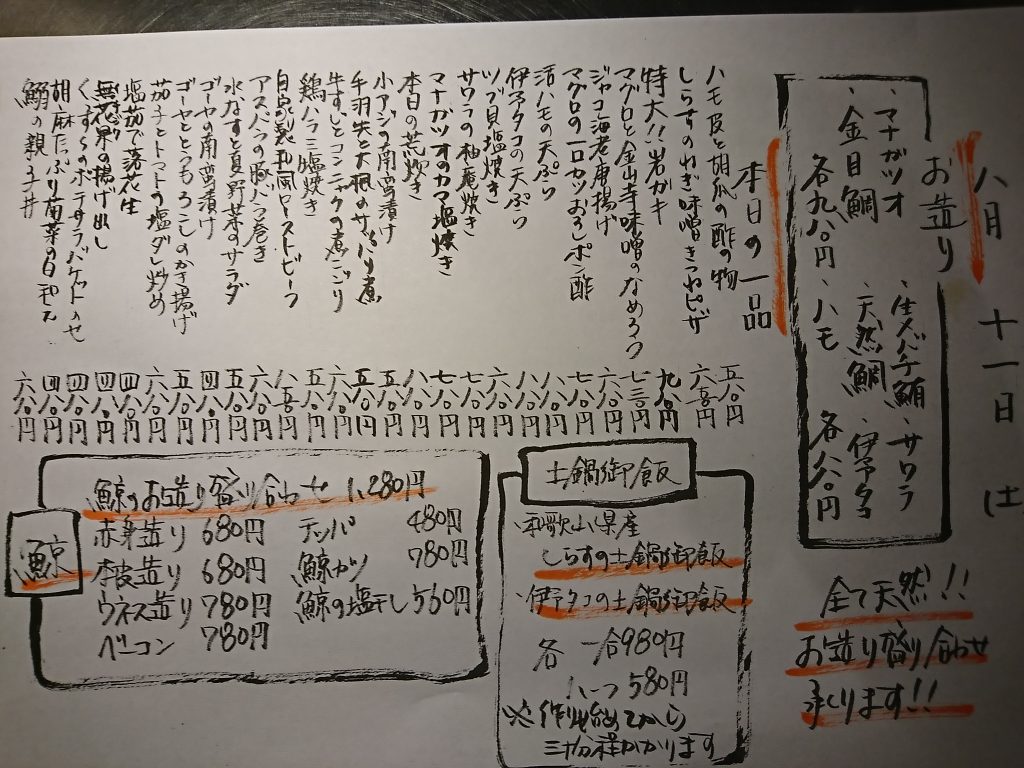 八月 十一日 土
お造り
・マナガツオ ・生メバチ鮪 ・サワラ
・金目鯛 ・天然鯛 ・伊予タコ
各九八〇円 ・ハモ 各八八〇円
全て天然!!
お造り盛り合わせ
承ります!!
本日の一品
ハモ皮と胡瓜の酢の物 五八〇円
しらすのねぎ味噌きつねピザ 六五〇円
特大!!岩ガキ 九八〇円
マグロと金山寺味噌のなめろう 七三〇円
ジャコ海老唐揚げ 六八〇円
マグロの一口カツおろしポン酢 七八〇円
活ハモの天ぷら 八八〇円
伊予タコの天ぷら 八八〇円
ツブ貝塩焼き 六八〇円
サワラの柚庵焼き 七八〇円
マナガツオのカマ塩焼き 七八〇円
本日の荒炊き 八八〇円
小アジの南蛮漬け 五八〇円
手羽先と大根のサッパリ煮 五八〇円
牛すじとコンニャクの煮こごり 五八〇円
鶏バラ三塩焼き 五八〇円
自家製和風ローストビーフ 八五〇円
アスパラの豚バラ巻き 六八〇円
水なすと夏野菜のサラダ 五八〇円
ゴーヤの南蛮漬け 四八〇円
ゴーヤととうもろこしのかき揚げ 五八〇円
茄子とトマトの塩ダレ炒め 六八〇円
塩茹で落花生 四八〇円
無花果の揚げ出し 四八〇円
くじらのポテサラバケットのせ 四八〇円
胡麻たっぷり南菜の白和え 四八〇円
鰯の親子丼 六八〇円
土鍋御飯
・和歌山県産
しらすの土鍋御飯
・伊予タコの土鍋御飯
各 一合980円
ハーフ 580円
※作り始めてから
三十分程かかります
鯨
鯨のお造り盛り合わせ 1,280円
赤身造り 680円 テッパ 480円
本皮造り 680円 鯨カツ 780円
ウネス造り 780円 鯨の塩干し 560円
ベーコン 780円